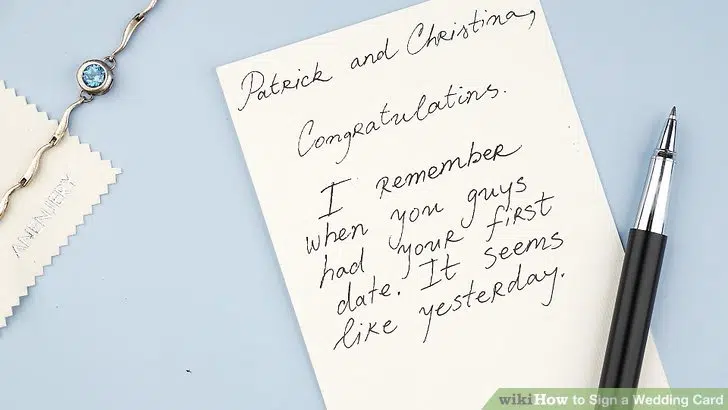 Patrick and Christina,
Congratulatins.
I remember
when you guys
had your first
date. It seems
like yesterday.
wikiHow to Sign a Wedding Card